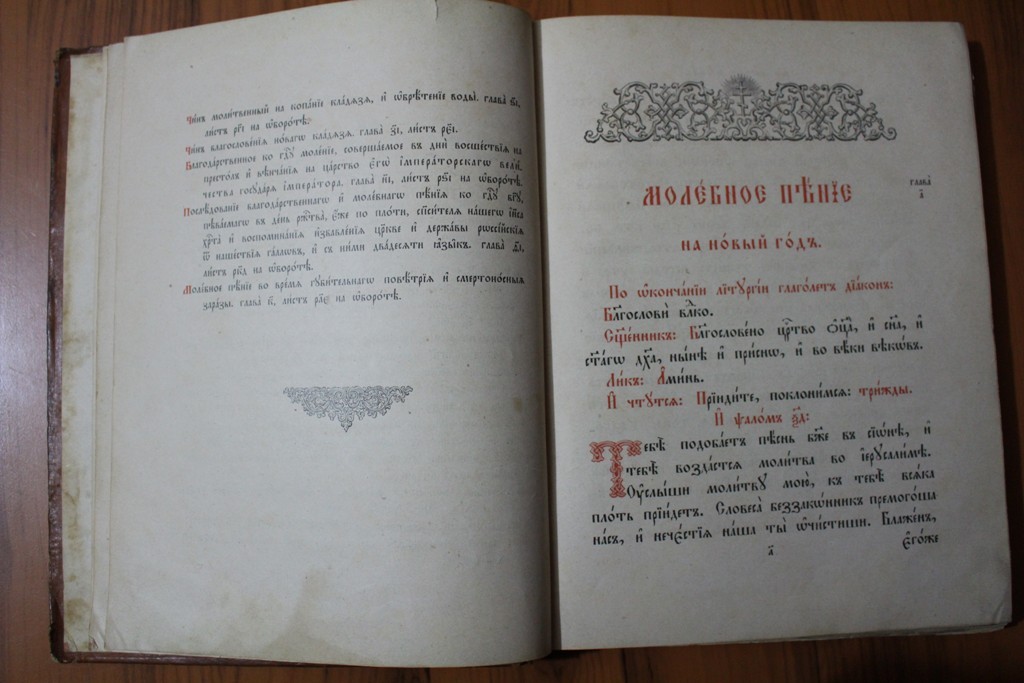 Чи́нъ моли́твенный на копа́нїе кла́дѧзѧ, и҆ ѡ҆брѣ́тенїе воды̀. глава̀
ли́стъ на ѡ҆боро́тѣ.
Чи́нъ благослове́нїѧ но́вагѡ кла́дѧзѧ. глава̀ ли́стъ
Благода́рственное ко гдⷭ҇ꙋ моле́нїе, соверша́емое въ де́нь восше́ствїѧ на
престо́лъ и҆ вѣнча́нїѧ на ца́рство є҆гѡ̀ і҆мпера́торскагѡ вели́-
чества госꙋда́рѧ і҆мпера́тора. глава̀ ли́стъ на ѡ҆боро́тѣ.
Послѣ́дованїе благода́рственнагѡ и҆ моле́бнагѡ пѣ́нїѧ ко гдⷭ҇ꙋ бг҃ꙋ,
пѣва́емагѡ въ де́нь ржⷭ҇тва̀, є҆́же по пло́ти, сп҃си́телѧ на́шегѡ і҆и҃са
хрⷭ҇та̀ и҆ воспомина́нїѧ и҆збавле́нїѧ цр҃кве и҆ держа́вы рѡссі́йскїѧ
ѿ наше́ствїѧ га́ллѡвъ, и҆ съ ни́ми два́десѧти ꙗ҆зы̑къ. глава̀
ли́стъ на ѡ҆боро́тѣ.
Моле́бное пѣ́нїе во вре́мѧ гꙋби́тельнагѡ повѣ́трїѧ и҆ смертоно́сныѧ
зара́зы. глава̀ ли́стъ на ѡ҆боро́тѣ.
МОЛЕ́БНОЕ ПѢ́НЇЕ
глава̀
а҃
НА НО́ВЫЙ ГО́ДЪ.
По ѡ҆конча́нїи лїтꙋргі́и глаго́летъ дїа́конъ:
Благословѝ влⷣко.
Сщ҃е́нникъ: Бл҃гослове́но црⷭ҇тво ѻ҆ц҃а̀, и҆ сн҃а, и҆
ст҃а́гѡ дх҃а, ны́нѣ и҆ при́снѡ, и҆ во вѣ́ки вѣкѡ́въ.
Ли́къ: А҆ми́нь.
И҆ чтꙋ́тсѧ: Прїиди́те, поклони́мсѧ: три́жды.
И҆ ѱало́мъ ѯ҃д:
Тебѣ̀ подоба́етъ пѣ́снь бж҃е въ сїѡ́нѣ, и҆
тебѣ̀ возда́стсѧ моли́тва во і҆ерⷭ҇ли́мѣ.
Оу҆слы́ши моли́твꙋ мою̀, къ тебѣ̀ всѧ́ка
пло́ть прїи́детъ. Словеса̀ беззако́нникъ премого́ша
на́съ, и҆ нече́стїѧ на̑ша ты̀ ѡ҆чи́стиши. Блаже́нъ,
а҃
є҆го́же